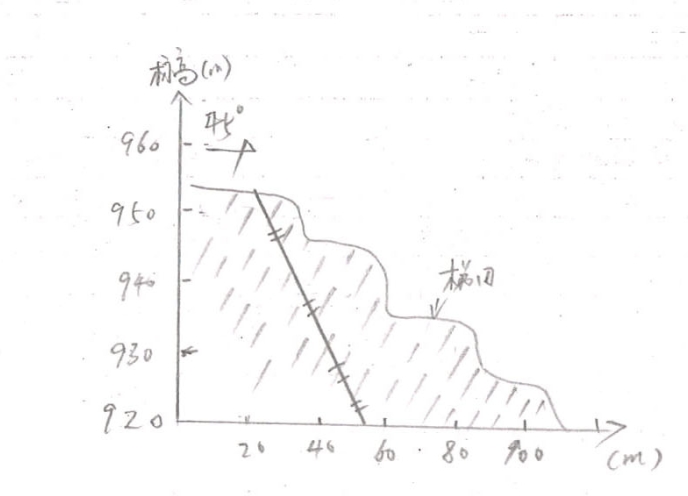 标高(m)
45°
960
950
940
930
920
梯田
20 40 60 80 100
(m)